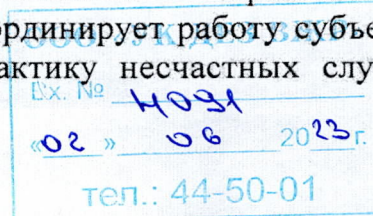 ординирует работу субъе
ООО "УК ДЕЗ
актику несчастных слу
Вх. № 4091
«02» 06 2023г.
тел.: 44-50-01